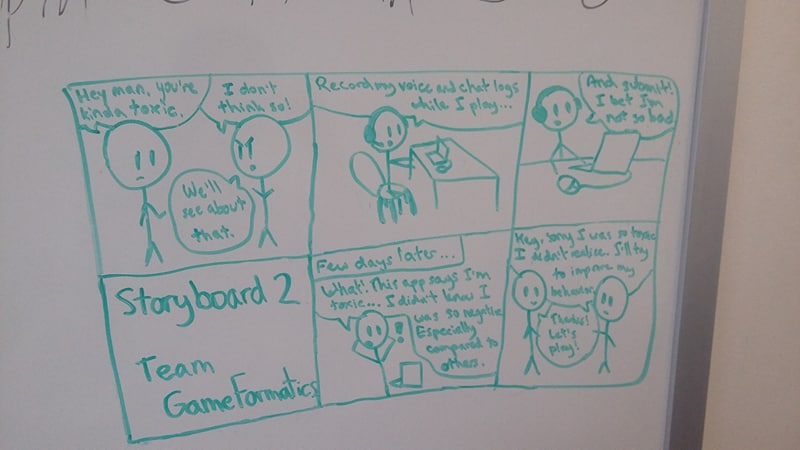 Hey man, you're
kinda toxic.
I don't
think so!
We'll
see about
that.
Record my voice and chat logs
while I play...
And submit!
I bet I'm
not so bad
Storyboard 2
Team
GameFormatics
Few days later...
What! This app says I'm
toxic... I didn't know I
was so negative
Especially
compared to
others.
Hey, sorry I was so toxic
I didn't realize. I'll try
to improve my
behavior
Thanks!
Let's
play!